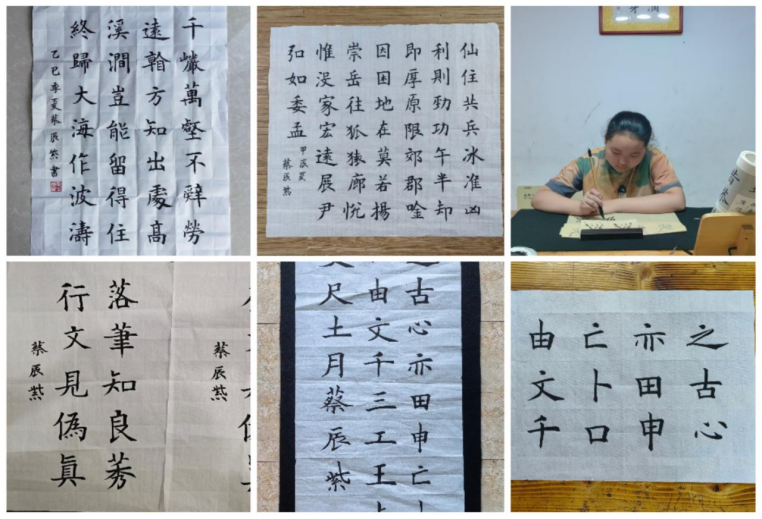 千巖萬壑不辭勞
遠看方知出處高
溪澗豈能留得住
終歸大海作波濤
乙巳季夏蔡辰紫書
仙住共兵冰准凶
利則勁功午半却
即厚原限郊郡唫
因困地在莫若揚
崇岳往狐猿廊悅
惟沒家宏遠展尹
弘如委孟
甲辰夏
蔡辰紫
落筆知良莠
行文見偽真
蔡辰紫
蔡辰紫
之古心亦田申亡卜
由文千三工王上
尺土月蔡辰紫
之古心
亦田申
亡卜口
由文千